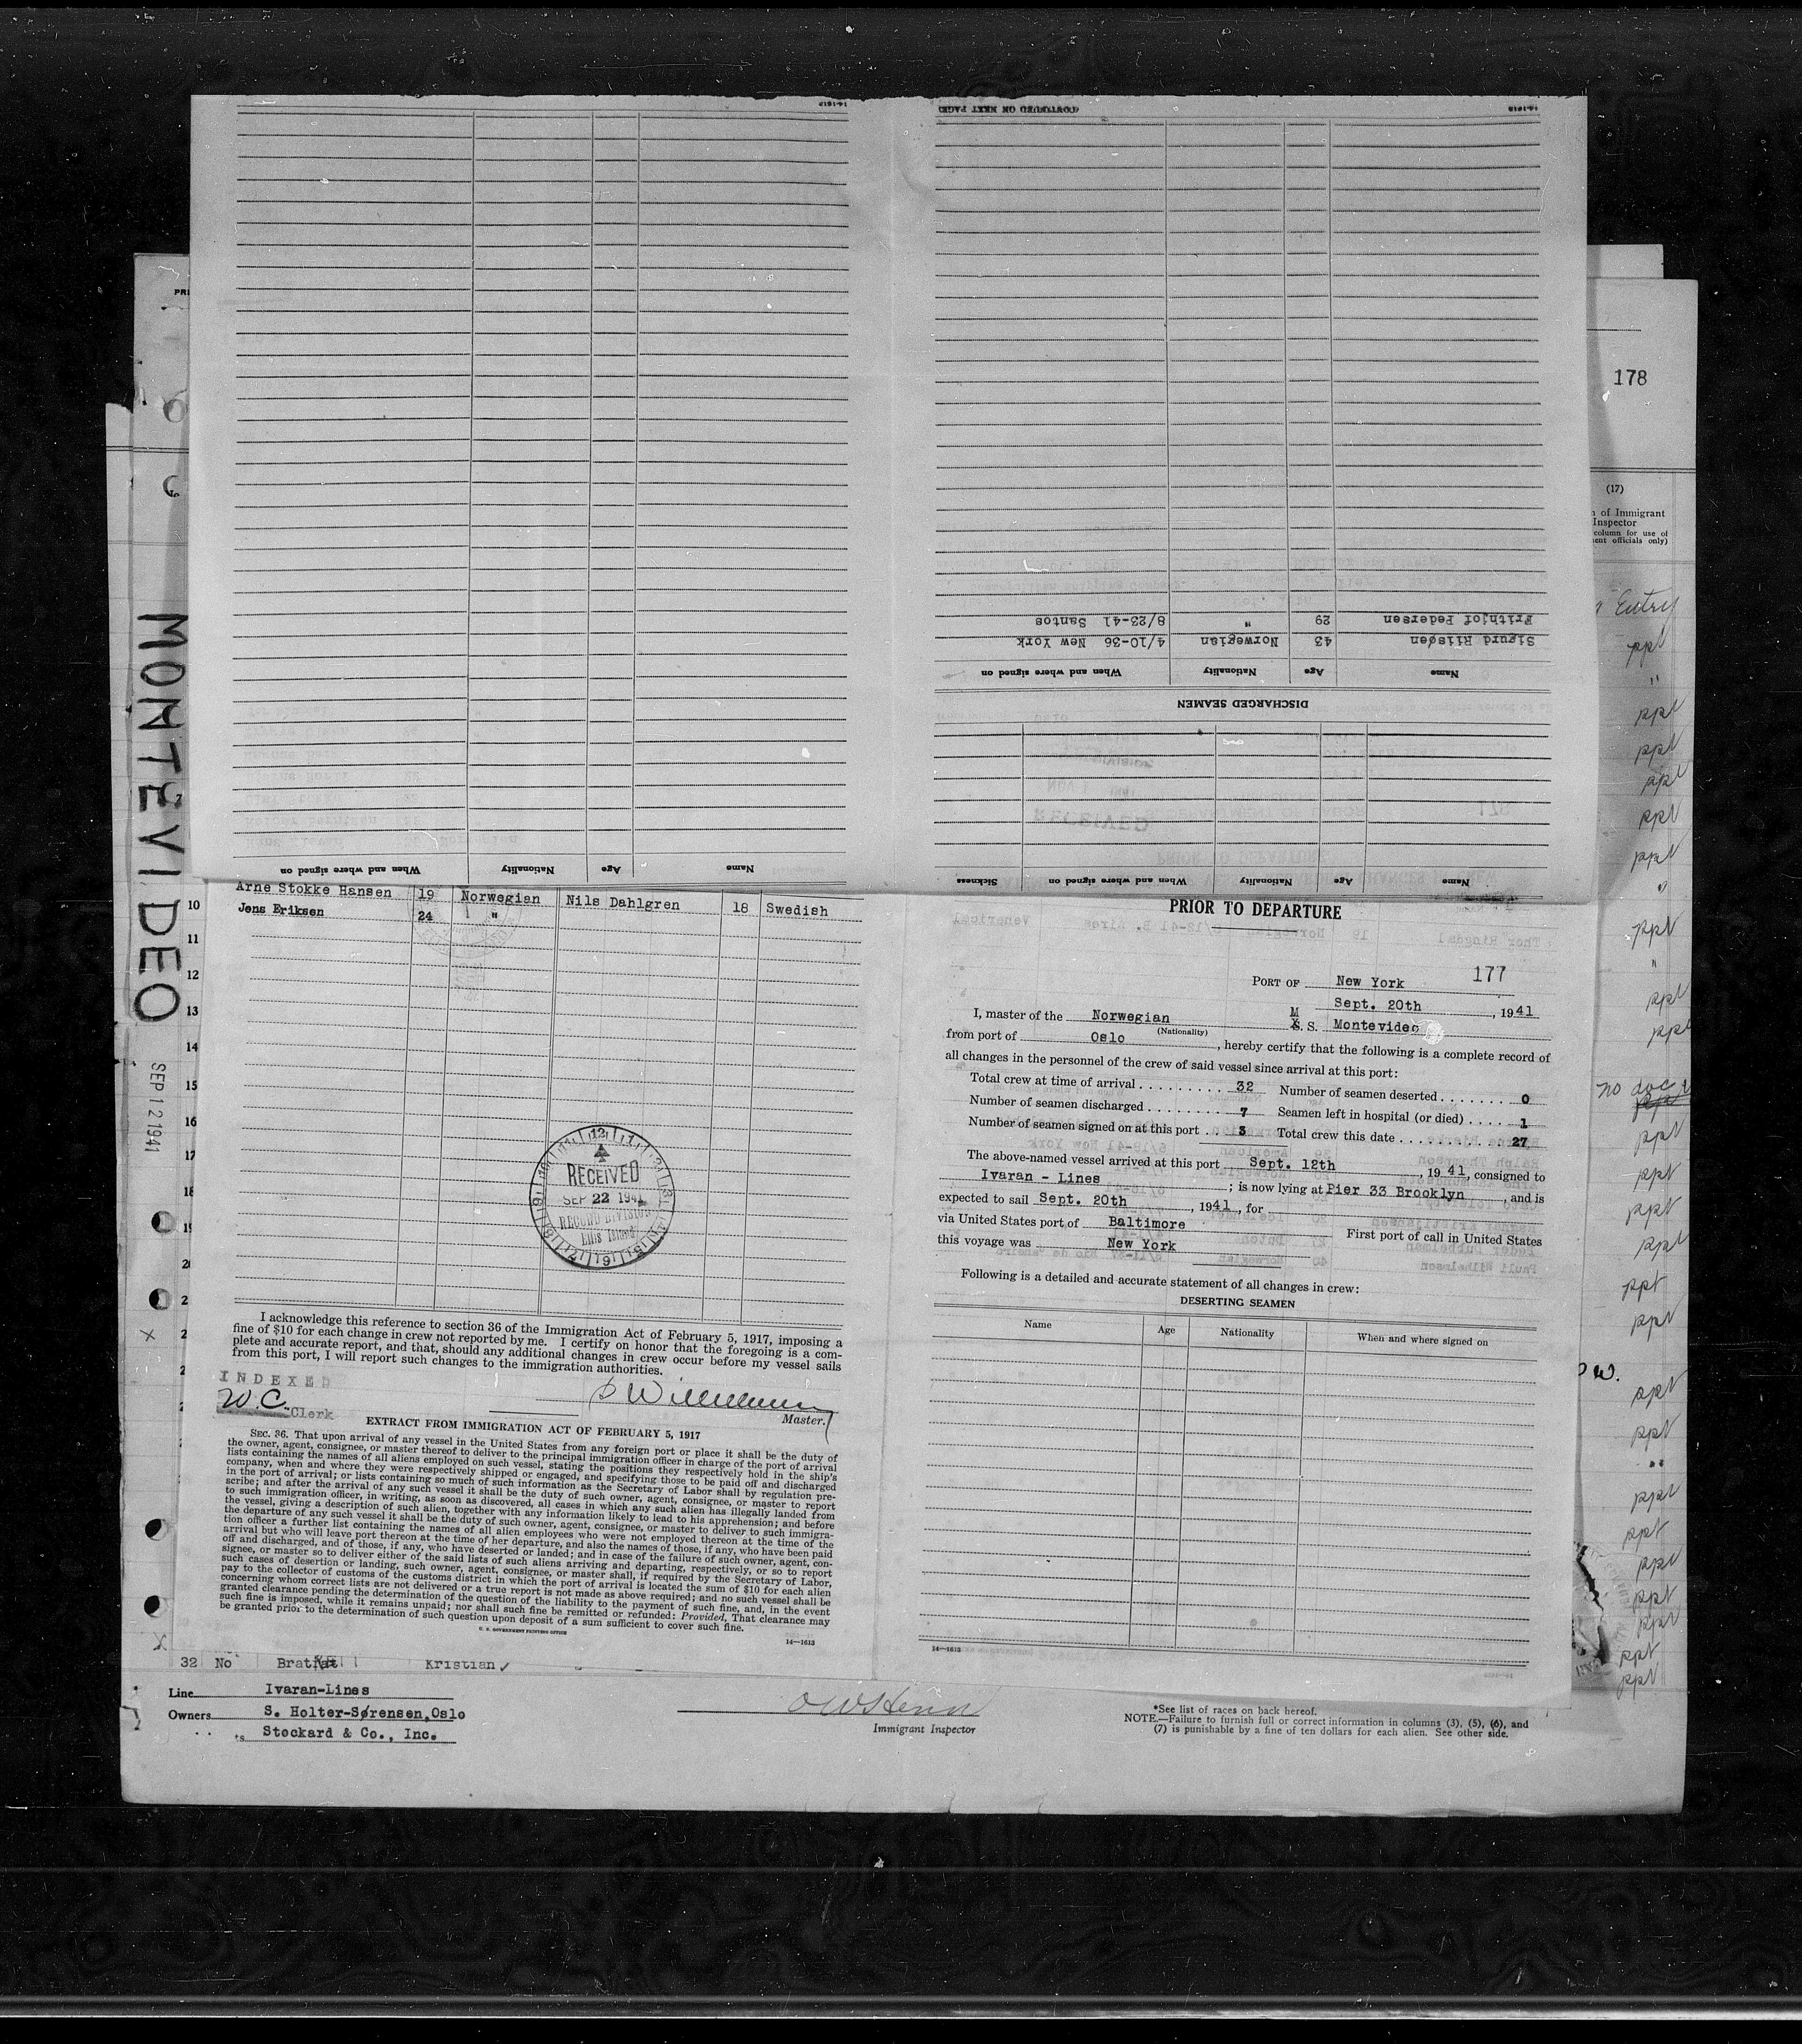 14-1613
(CONTINUED ON NEXT PAGE)
14-1613
178
(17)
of Immigrant
Inspector
column for use of
ent officials only)
Entry
ppt
"
ppt
ppt
ppt
ppt
ppt
"
ppt
"
ppt
ppt
no doc
ppt
ppt
ppt
ppt
ppt
ppt
ppt
W.
ppt
ppt
"
ppt
ppt
ppt
ppt
ppt
ppt
ppt
MONTEVIDEO
SEP 12 1941
Frithjof Pedersen 29 " 8/23-41 Santos
Sigurd Riisøen 43 Norwegian 4/10-36 New York
Name Age Nationality When and where signed on
DISCHARGED SEAMEN
When and where signed on Nationality Age Name
Sickness When and where signed on Nationality Age Name
10
11
12
13
14
15
16
17
18
19
Arne Stokke Hansen 19 Norwegian Nils Dahlgren 18 Swedish
Jens Eriksen 24 "
RECEIVED
SEP 22 1941
RECORD DIVISION
Ellis Island
I acknowledge this reference to section 36 of the Immigration Act of February 5, 1917, imposing a
fine of $10 for each change in crew not reported by me. I certify on honor that the foregoing is a com-
plete and accurate report, and that, should any additional changes in crew occur before my vessel sails
from this port, I will report such changes to the immigration authorities.
INDEXED
W.C. Clerk
Master.
EXTRACT FROM IMMIGRATION ACT OF FEBRUARY 5, 1917
SEC. 36. That upon arrival of any vessel in the United States from any foreign port or place it shall be the duty of
the owner, agent, consignee, or master thereof to deliver to the principal immigration officer in charge of the port of arrival
lists containing the names of all aliens employed on such vessel, stating the positions they respectively hold in the ship's
company, when and where they were respectively shipped or engaged, and specifying those to be paid off and discharged
in the port of arrival; or lists containing so much of such information as the Secretary of Labor shall by regulation pre-
scribe; and after the arrival of any such vessel it shall be the duty of such owner, agent, consignee, or master to report
to such immigration officer, in writing, as soon as discovered, all cases in which any such alien has illegally landed from
the vessel, giving a description of such alien, together with any information likely to lead to his apprehension; and before
the departure of any such vessel it shall be the duty of such owner, agent, consignee, or master to deliver to such immigra-
tion officer a further list containing the names of all alien employees who were not employed thereon at the time of the
arrival but who will leave port thereon at the time of her departure, and also the names of those, if any, who have been paid
off and discharged, and of those, if any, who have deserted or landed; and in case of the failure of such owner, agent, con-
signee, or master so to deliver either of the said lists of such aliens arriving and departing, respectively, or so to report
such cases of desertion or landing, such owner, agent, consignee, or master shall, if required by the Secretary of Labor,
pay to the collector of customs of the customs district in which the port of arrival is located the sum of $10 for each alien
concerning whom correct lists are not delivered or a true report is not made as above required; and no such vessel shall be
granted clearance pending the determination of the question of the liability to the payment of such fine, and, in the event
such fine is imposed, while it remains unpaid; nor shall such fine be remitted or refunded: Provided, That clearance may
be granted prior to the determination of such question upon deposit of a sum sufficient to cover such fine.
U. S. GOVERNMENT PRINTING OFFICE
14-1613
PRIOR TO DEPARTURE
177
PORT OF New York
Sept. 20th, 1941
I, master of the Norwegian M S. S. Montevideo
(Nationality)
from port of Oslo, hereby certify that the following is a complete record of
all changes in the personnel of the crew of said vessel since arrival at this port:
Total crew at time of arrival 32 Number of seamen deserted 0
Number of seamen discharged 7 Seamen left in hospital (or died) 1
Number of seamen signed on at this port 3 Total crew this date 27
The above-named vessel arrived at this port Sept. 12th, 1941, consigned to
Ivaran - Lines; is now lying at Pier 33 Brooklyn, and is
expected to sail Sept. 20th, 1941, for
via United States port of Baltimore First port of call in United States
this voyage was New York
Following is a detailed and accurate statement of all changes in crew:
DESERTING SEAMEN
Name Age Nationality When and where signed on
14-1613
32 No Kristian
Line Ivaran-Lines
Owners S. Holter-Sørensen, Oslo
Stockard & Co., Inc.
Immigrant Inspector
*See list of races on back hereof.
NOTE.—Failure to furnish full or correct information in columns (3), (5), (6), and
(7) is punishable by a fine of ten dollars for each alien. See other side.